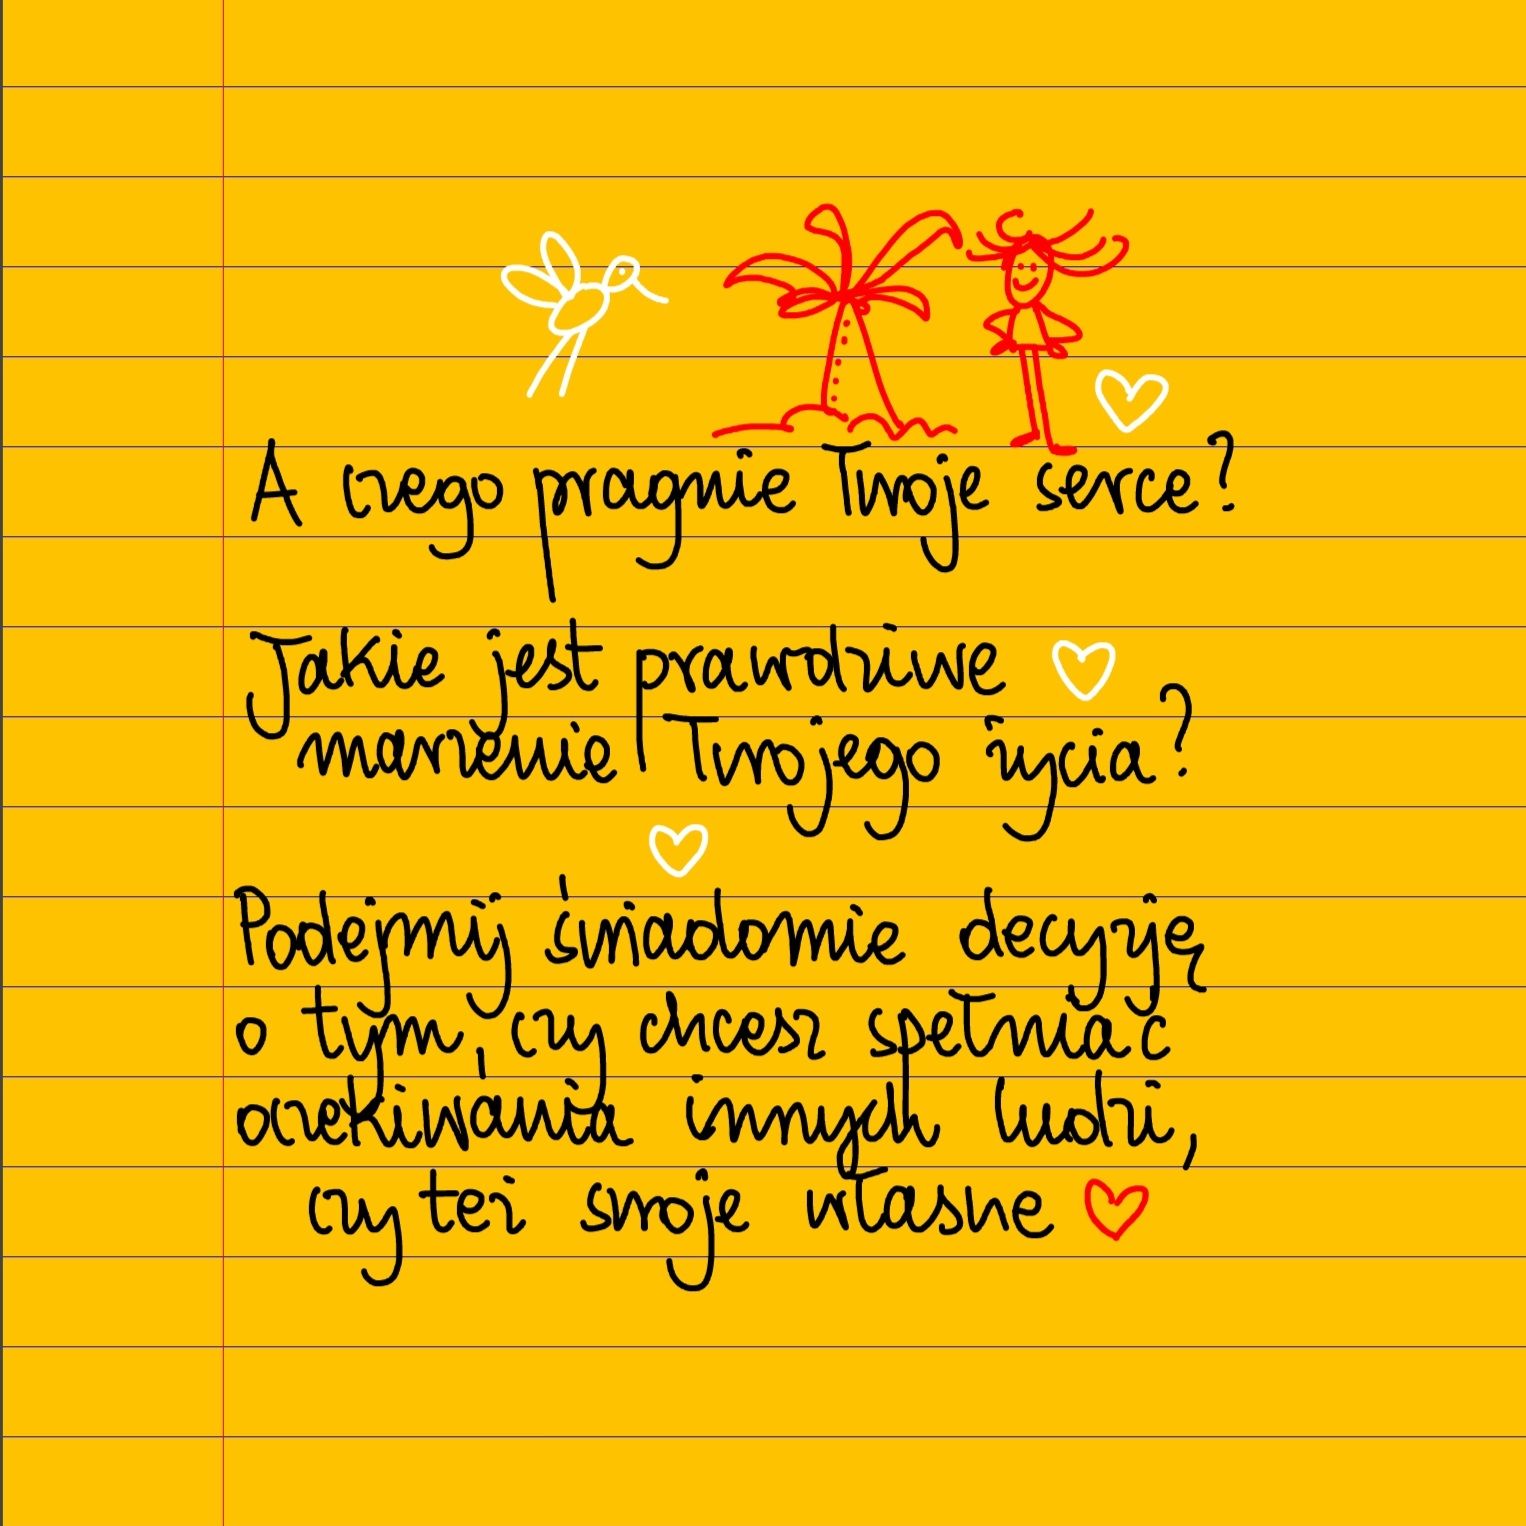 A czego pragnie Twoje serce?
Jakie jest prawdziwe
marzenie Twojego życia?
Podejmij świadomie decyzję
o tym, czy chcesz spełniać
oczekiwania innych ludzi,
czy też swoje własne